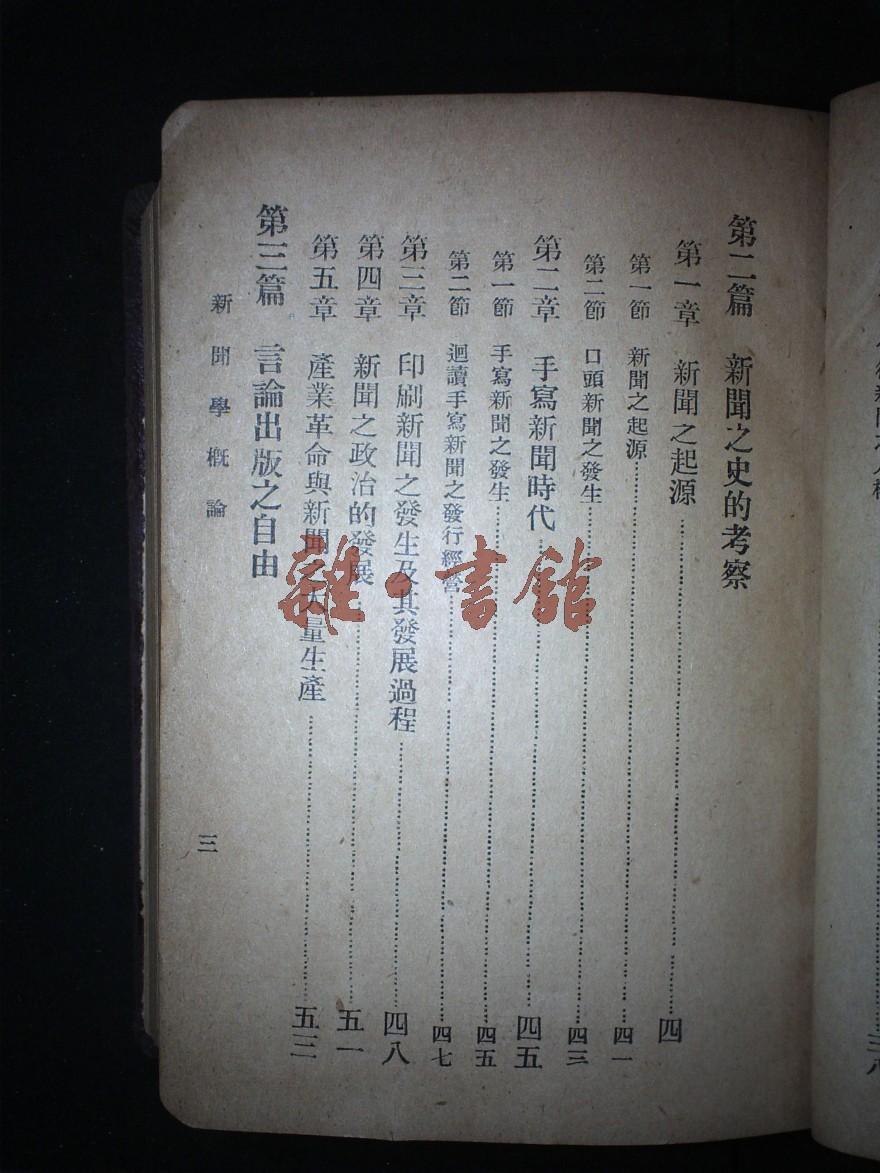 第二篇　新聞之史的考察
第一章　新聞之起源……四
第一節　新聞之起源……四一
第二節　口頭新聞之發生……四三
第二章　手寫新聞時代……四五
第一節　手寫新聞之發生……四五
第二節　迴讀手寫新聞之發行經營……四七
第三章　印刷新聞之發生及其發展過程……四八
第四章　新聞之政治的發展……五一
第五章　產業革命與新聞之大量生產……五三
第三篇　言論出版之自由
新聞學概論
三
雜·書館